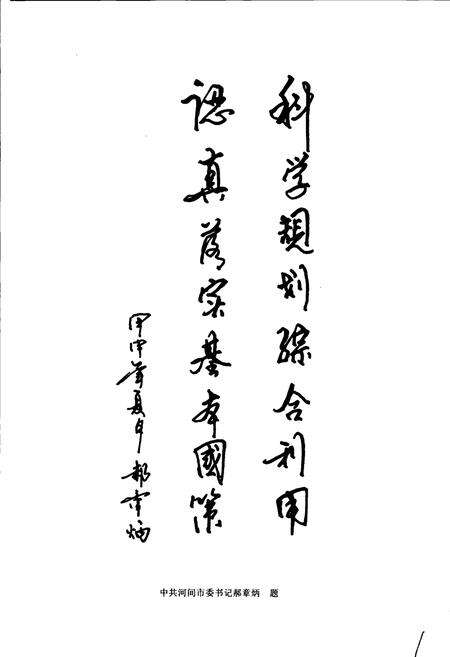 科学规划综合利用
認真落实基本國策
甲申年夏月郝章炳
中共河间市委书记郝章炳 题